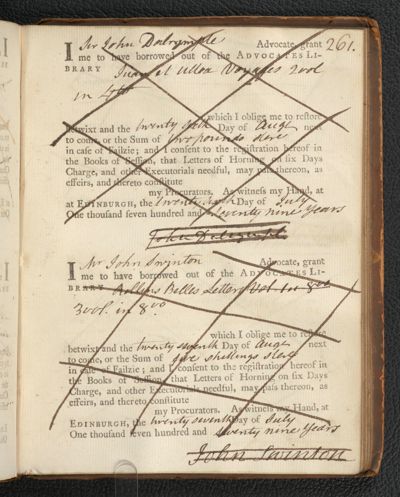 261.
I Sir John Dalrymple Advocate, grant
me to have borrowed out of the ADVOCATES LI-
BRARY Juan et Ulloa Voyages 2 vol
in
which I oblige me to restore
betwixt and the twenty Day of Augt next
to come, or the Sum of two pounds
in case of Failzie; and I consent to the registration hereof in
the Books of Session, that Letters of Horning on six Days
Charge, and other Executorials needful, may pass thereon, as
effeirs, and thereto constitute
my Procurators. As witness my Hand, at
at EDINBURGH, the twenty Day of July
One thousand seven hundred and seventy nine years
John Dalrymple
I Mr John Swinton Advocate, grant
me to have borrowed out of the ADVOCATES LI-
BRARY Rollins Belles Letters Vol in 8vo
3 vol. in 8vo
which I oblige me to restore
betwixt and the twenty seventh Day of Augt next
to come, or the Sum of five shillings
in case of Failzie; and I consent to the registration hereof in
the Books of Session, that Letters of Horning on six Days
Charge, and other Executorials needful, may pass thereon, as
effeirs, and thereto constitute
my Procurators. As witness my Hand, at
EDINBURGH, the twenty seventh Day of July
One thousand seven hundred and seventy nine years
John Swinton